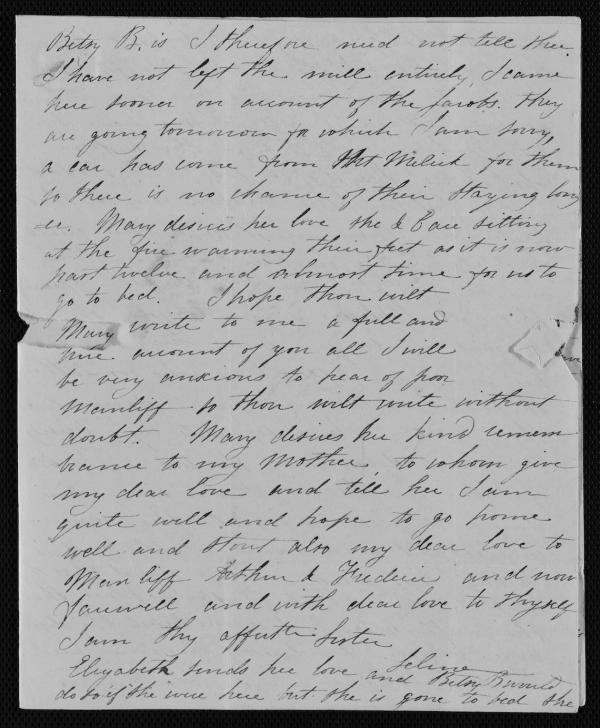 Betsy B. is I therefore need not tell thee.
I have not left the mill entirely, I came
here sooner on account of the Jacobs. they
are going tomorrow for which I am sorry,
a car has come from Mt Melick for them
so there is no chance of their staying long
=er. Mary desires her love she & E are sitting
at the fire warming their feet as it is now
past twelve and almost time for us to
go to bed. I hope thou wilt
Mary write to me a full and
true account of you all I will
be very anxious to hear of poor
Manliff so thou wilt write without
doubt. Mary desires her kind remem
brance to my Mother, to whom give
my dear love and tell her I am
quite well and hope to go home
well and stout also my dear love to
Manliff Arthur & Frederic and now
farewell and with dear love to thyself
I am thy affecte Sister
Selina
Elizabeth sends her love and Betsy B would
do so if she were here but she is gone to bed she